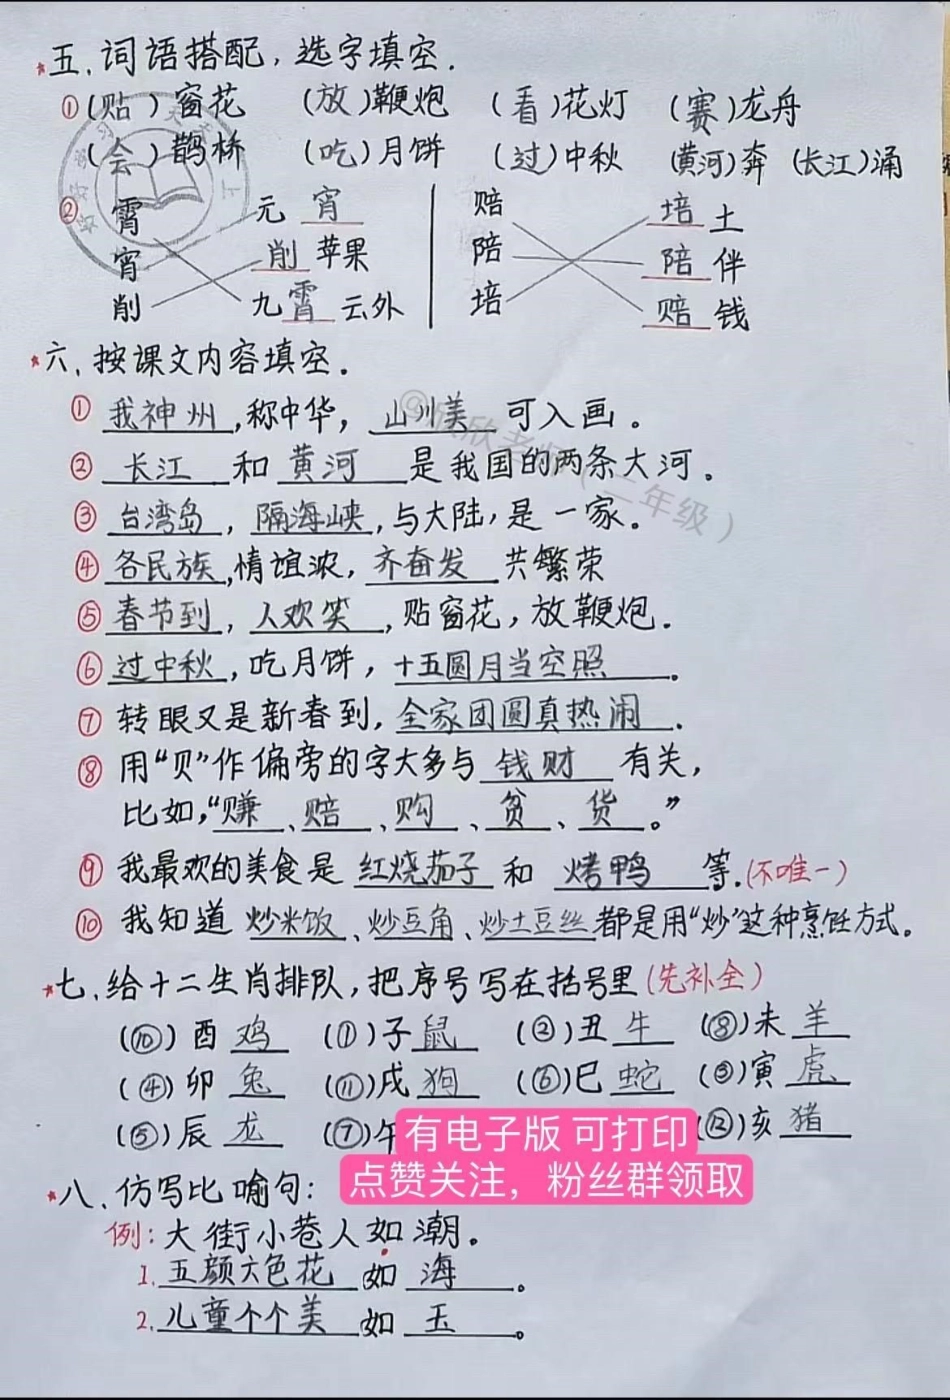 五、词语搭配，选字填空.
①(贴)窗花 (放)鞭炮 (看)花灯 (赛)龙舟
(会)鹊桥 (吃)月饼 (过)中秋 (黄河)奔 (长江)涌
② 霄 元宵 赔 培土
宵 削苹果 陪 陪伴
削 九霄云外 培 赔钱
六、按课文内容填空.
① 我神州,称中华,山川美可入画。
② 长江和黄河是我国的两条大河.
③ 台湾岛,隔海峡,与大陆,是一家.
④ 各民族,情谊浓,齐奋发共繁荣
⑤ 春节到,人欢笑,贴窗花,放鞭炮.
⑥ 过中秋,吃月饼,十五圆月当空照.
⑦ 转眼又是新春到,全家团圆真热闹.
⑧ 用“贝”作偏旁的字大多与钱财有关,
比如,“赚、赔、购、贫、货。”
⑨ 我最欢的美食是红烧茄子和烤鸭等.(不唯一)
⑩ 我知道炒米饭、炒豆角、炒土豆丝都是用“炒”这种烹饪方式。
七、给十二生肖排队,把序号写在括号里(先补全)
(⑩)酉鸡 (①)子鼠 (②)丑牛 (⑧)未羊
(④)卯兔 (⑪)戌狗 (⑥)巳蛇 (③)寅虎
(⑤)辰龙 (⑦)午 (⑫)亥猪
有电子版 可打印
点赞关注，粉丝群领取
八、仿写比喻句:
例:大街小巷人如潮。
1.五颜六色花如海。
2.儿童个个美如玉。